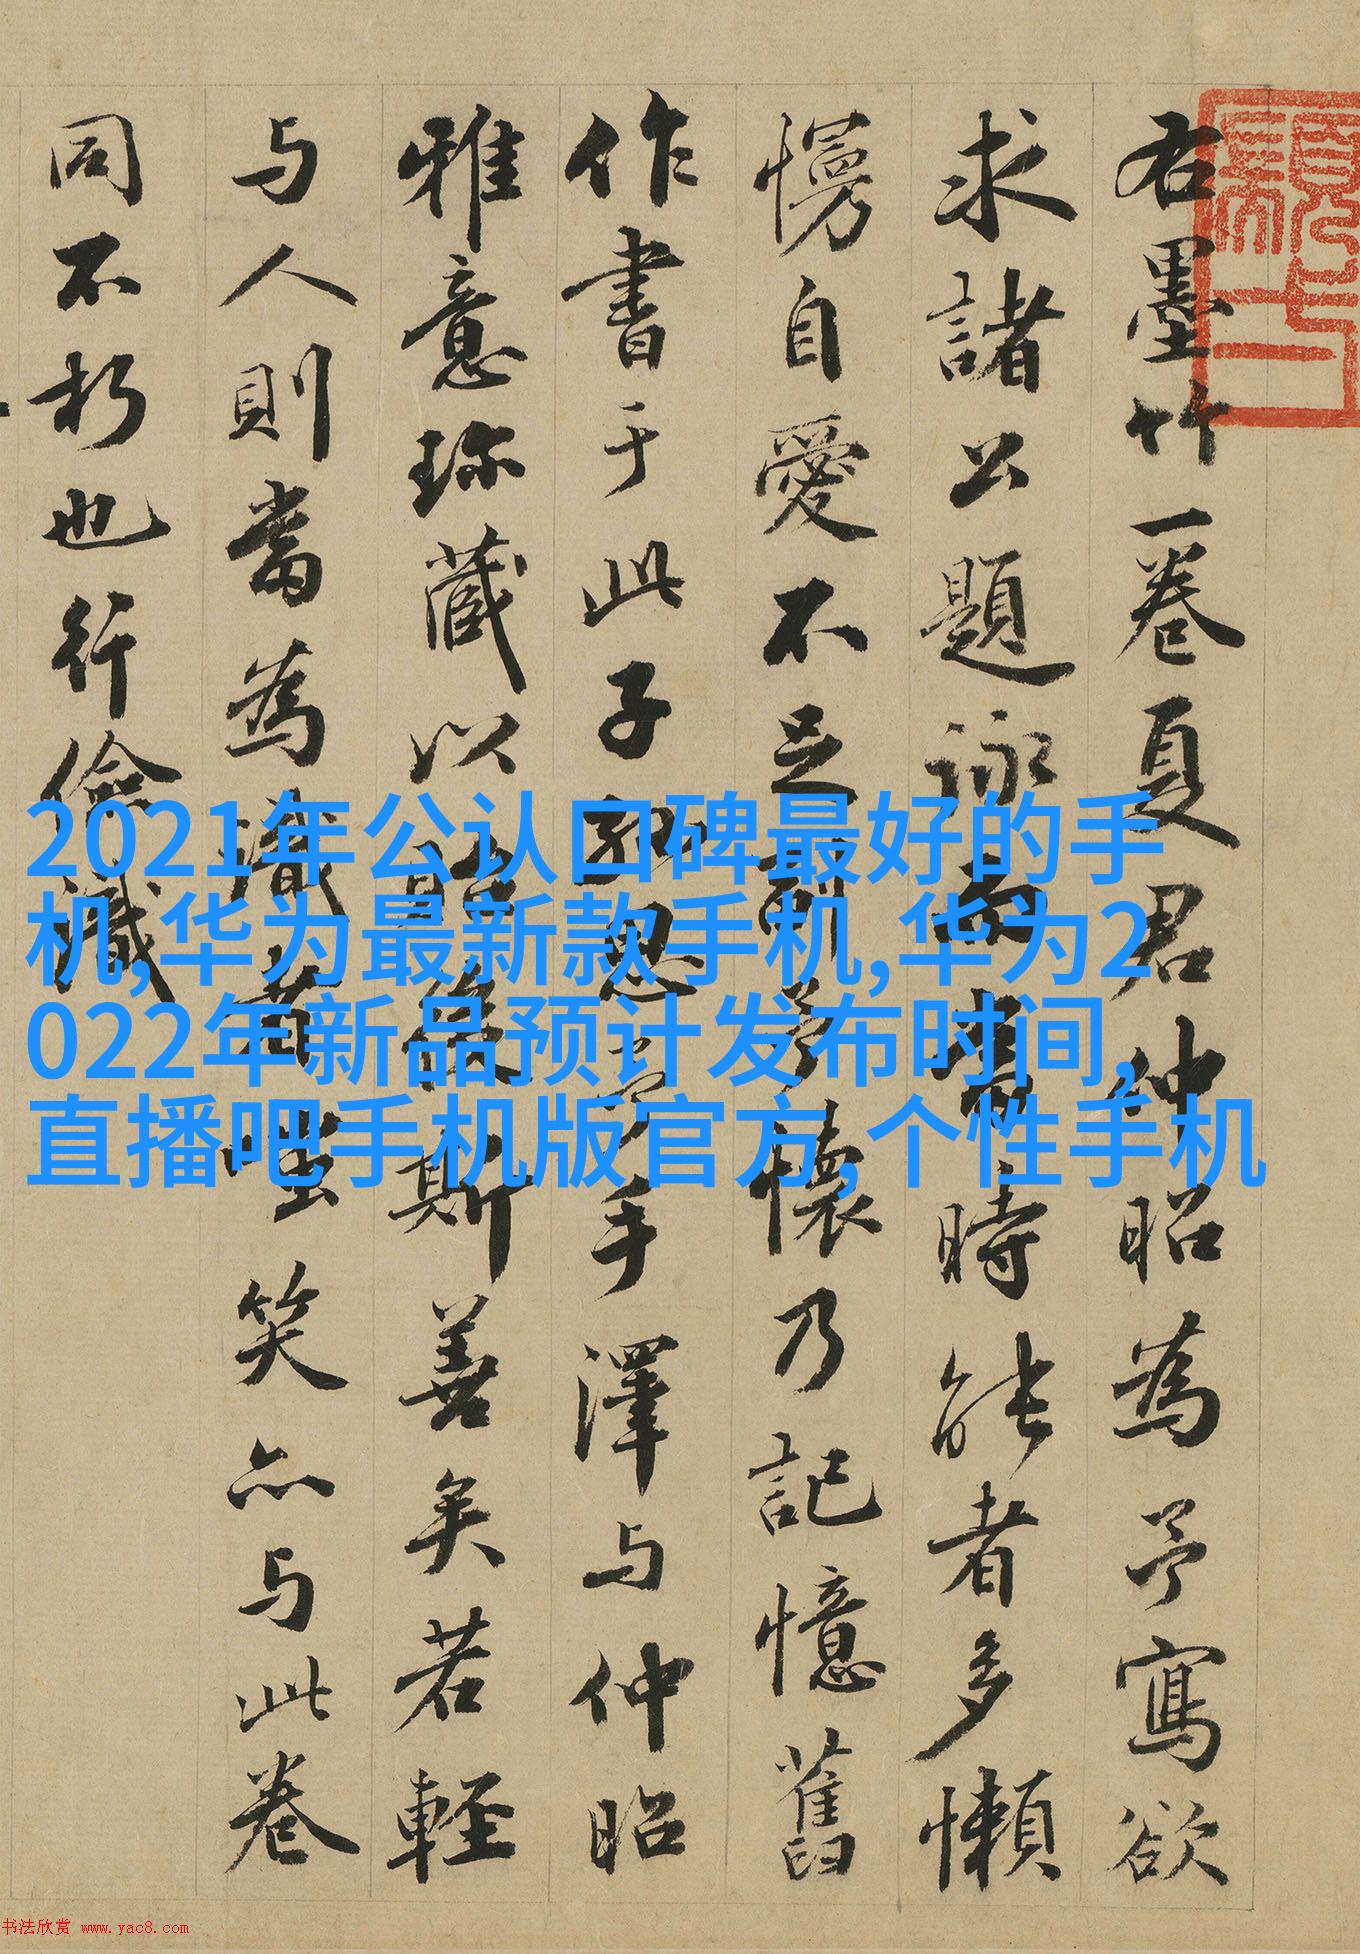 右墨竹一卷夏君仲昭為予寫欲
求諸公題詠而當時能者多懶
慢自愛不足副予懷乃記憶舊
作書于此子孫思予手澤与仲昭
雅意珍藏以貽後斯善矣若輕
与人則當為識者嗤笑亦与此卷
同不朽也行儉識
2021年公认口碑最好的手
机,华为最新款手机,华为2
022年新品预计发布时间,
直播吧手机版官方,个性手机
书法欣赏 www.yac8.com